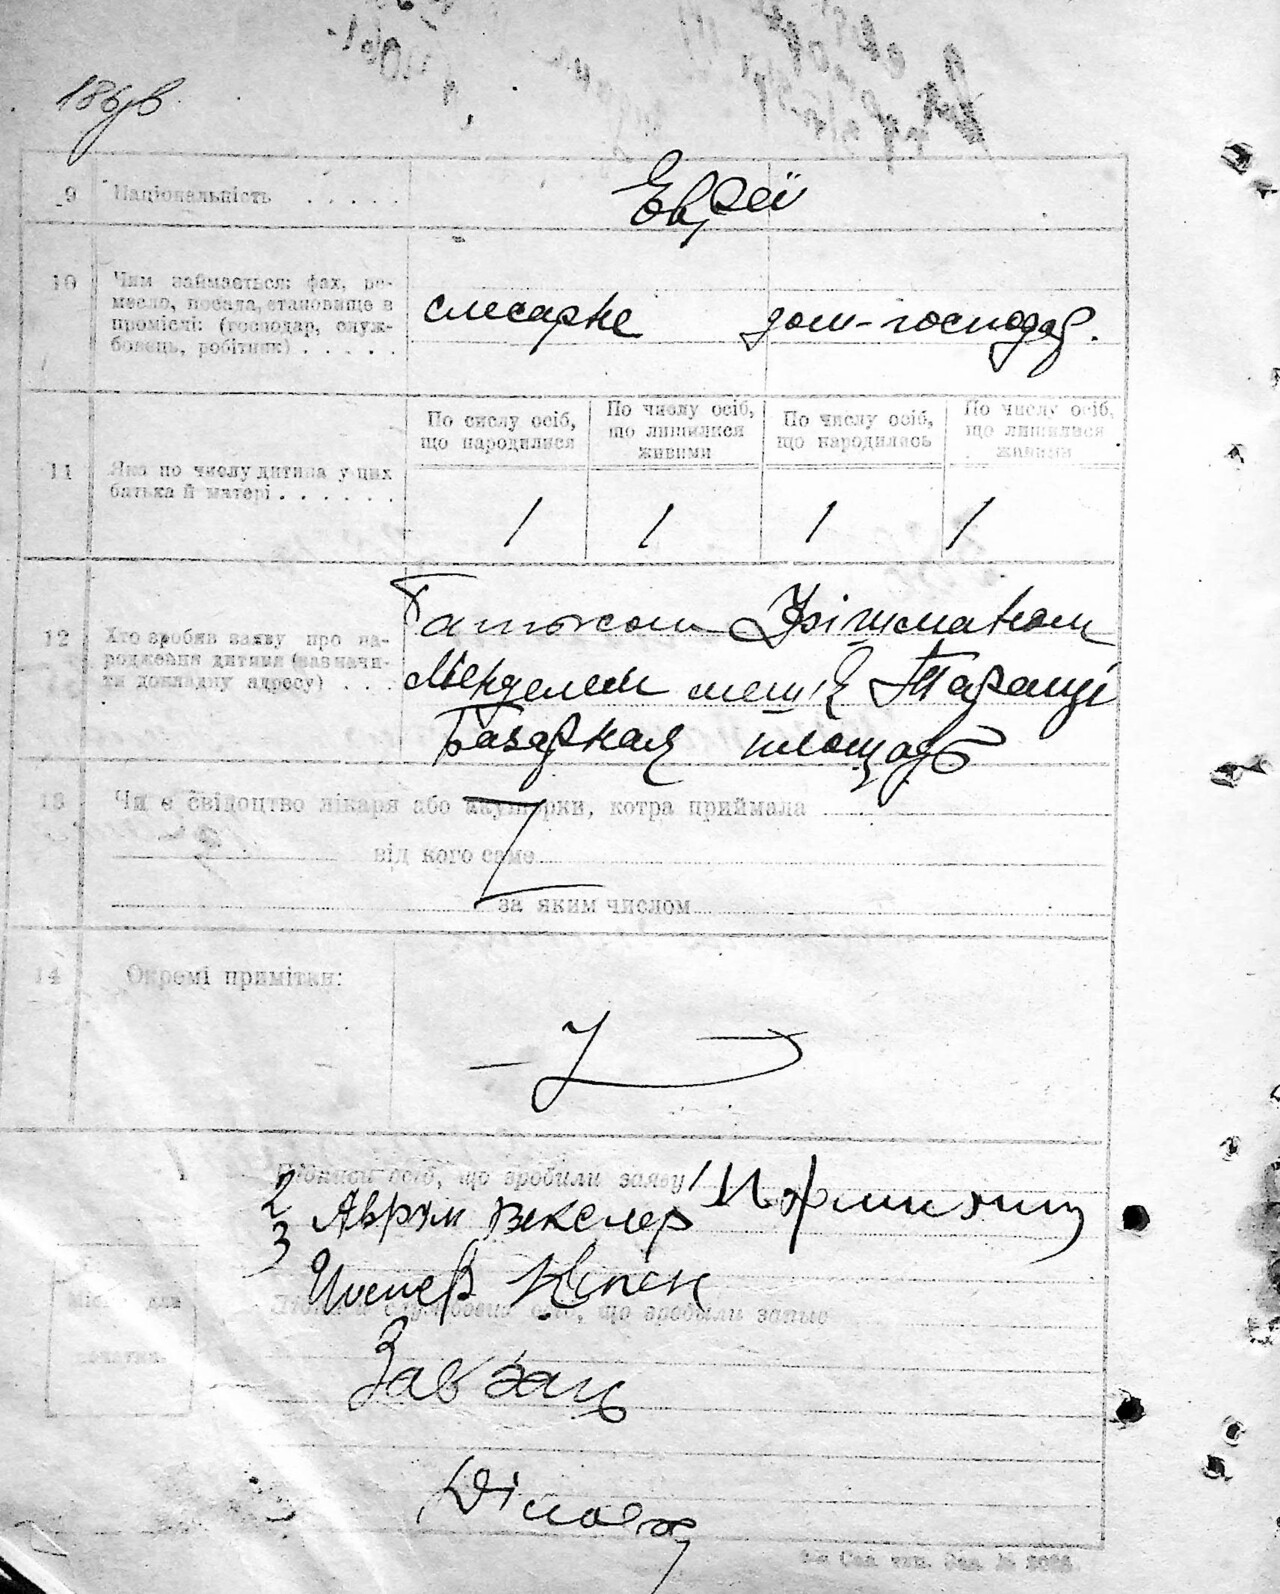 9 Національність . . . . . Євреї
10 Чим займається: фах, ре-
месло, посада, становище в
промислі: (господар, служ-
бовець, робітник) . . . . .
слесарне дом-господар.
По числу осіб, що народилися
По числу осіб, що лишилися живими
По числу осіб, що народилась
По числу осіб, що лишилися живими
11 Яка по числу дитина у цих
батька й матері . . . . . .
1 1 1 1
12 Хто зробив заяву про на-
родження дитини (зазначи-
ти докладну адресу) . . .
Батьком Фішманом
Менделем меш. в Таращі
Базарная площадь
13 Чи є свідоцтво лікаря або акушерки, котра приймала
від кого саме
за яким числом
14 Окремі примітки:
Підписи осіб, що зробили заяву 1
2 Аврум Векслер
3
Підписи службових осіб, що зробили запис
Місце для
печатки.
Завзаг
Діловод